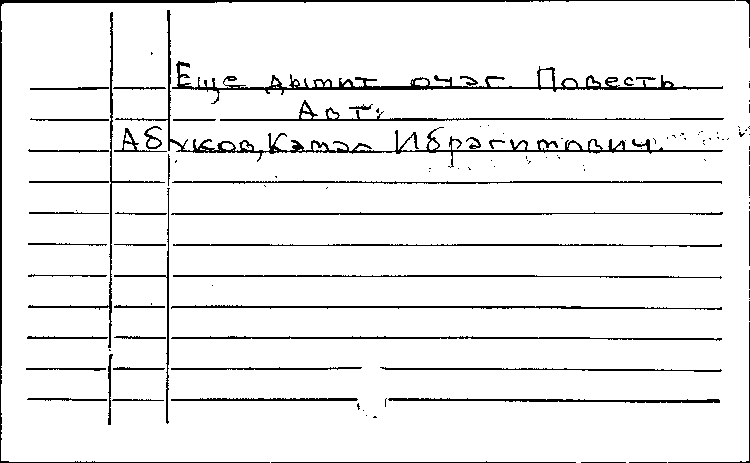 Еще дымит очаг. Повесть
Авт:
Абуков, Камал Ибрагимович.